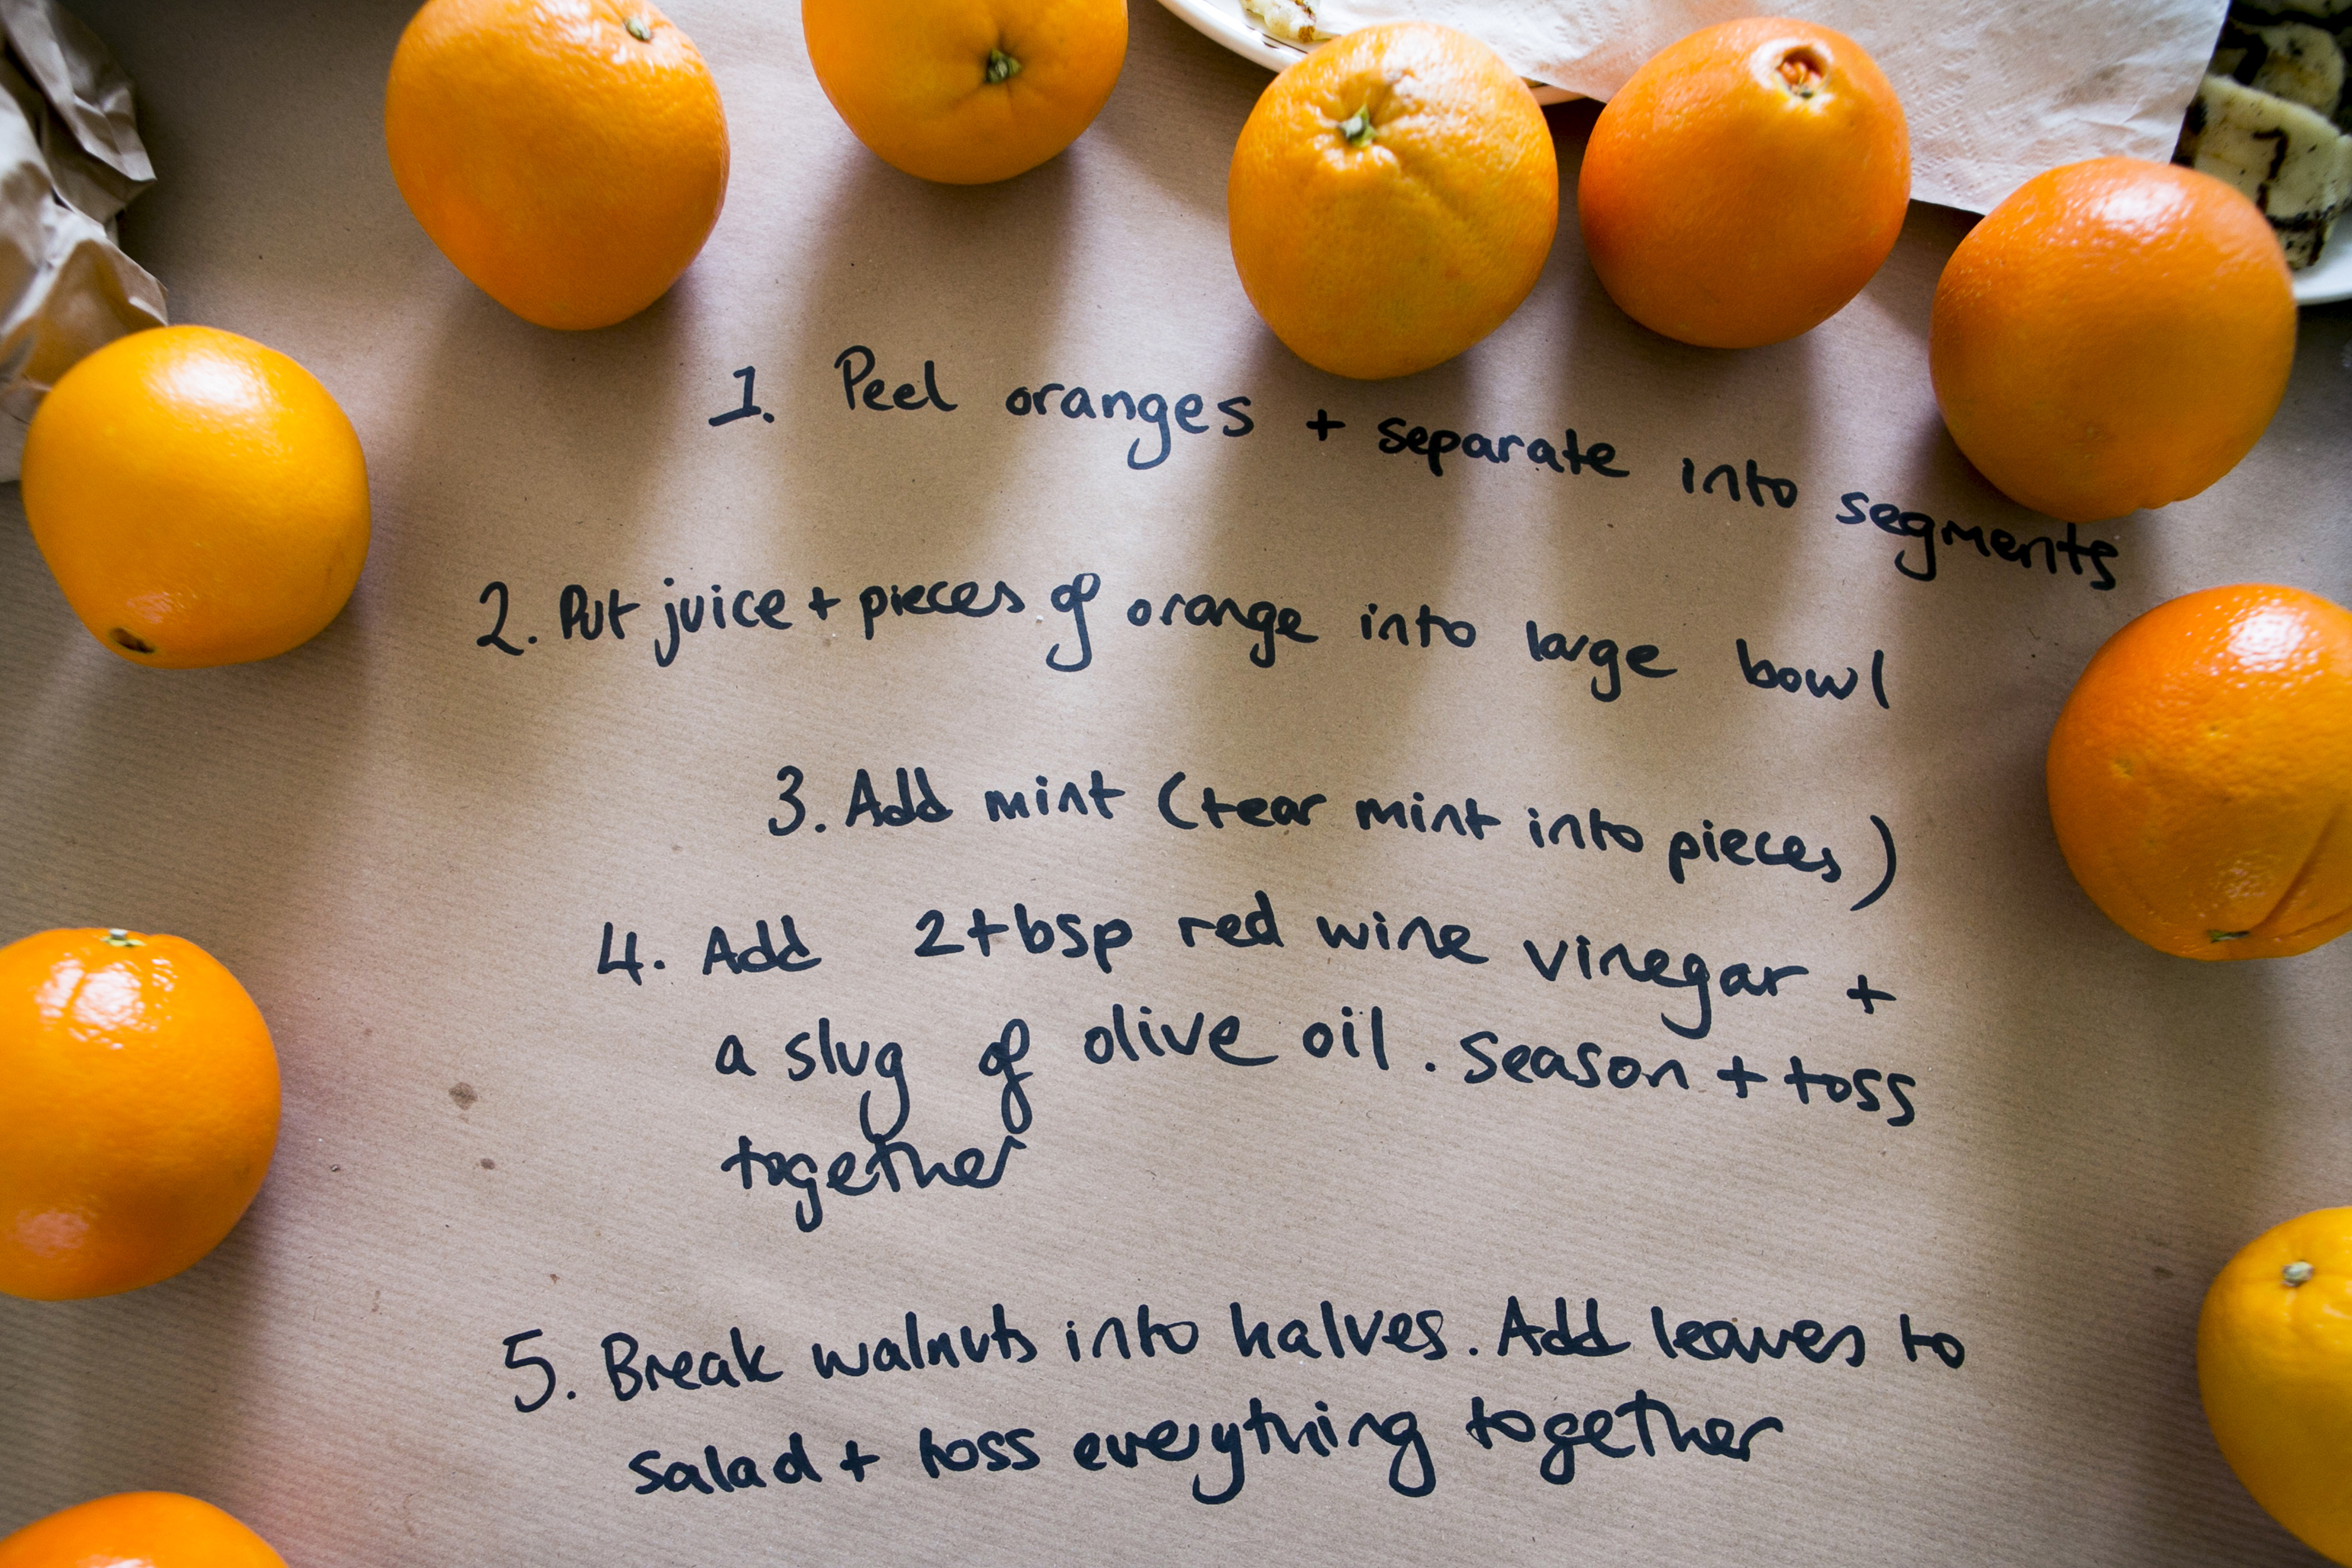 1. Peel oranges + separate into segments
2. Put juice + pieces of orange into large bowl
3. Add mint (tear mint into pieces)
4. Add 2tbsp red wine vinegar +
a slug of olive oil. Season + toss
together
5. Break walnuts into halves. Add leaves to
salad + toss everything together